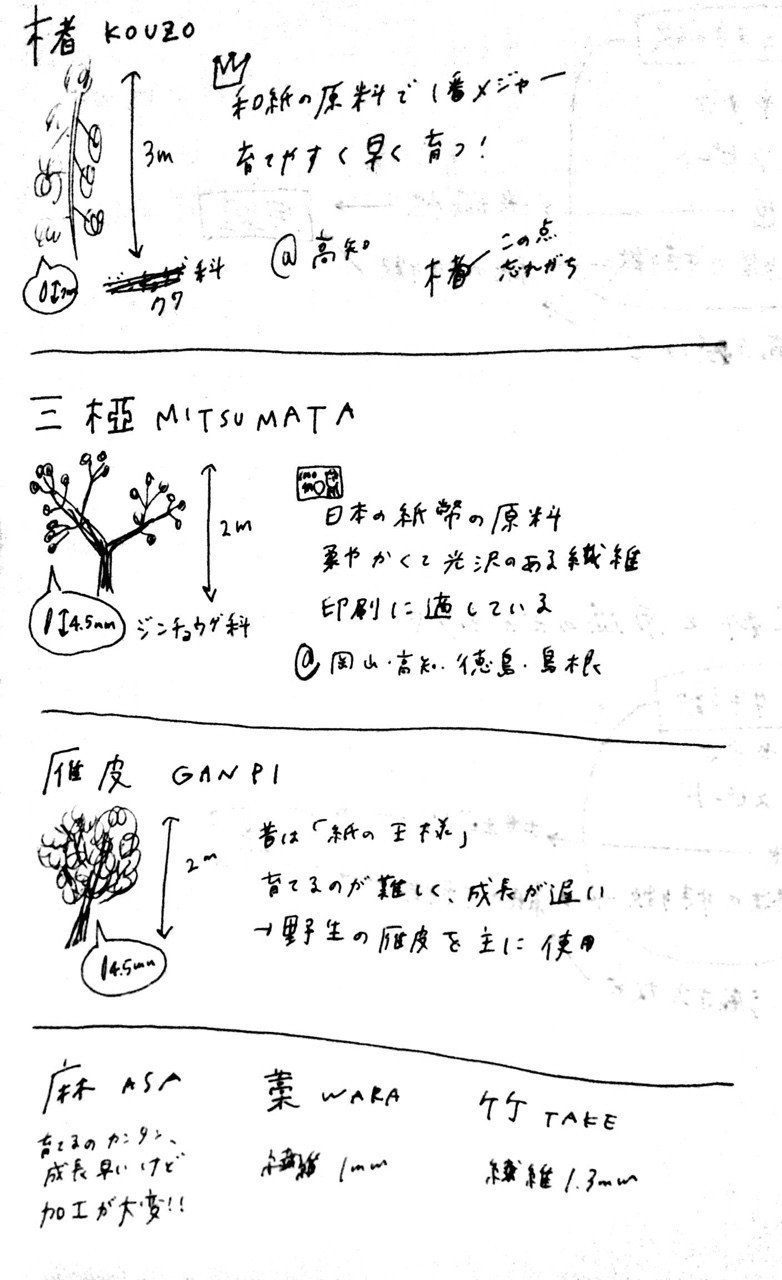 楮 KOUZO
和紙の原料で1番メジャー
育てやすく早く育つ!
3m
クワ科
@高知
楮 この点
忘れがち
三椏 MITSUMATA
2m
4.5mm
ジンチョウゲ科
日本の紙幣の原料
柔やかくて光沢のある繊維
印刷に適している
@岡山・高知・徳島・島根
雁皮 GANPI
2m
4.5mm
昔は「紙の王様」
育てるのが難しく、成長が遅い
→野生の雁皮を主に使用
麻 ASA
育てるのカンタン、
成長早いけど
加工が大変!!
藁 WARA
繊維 1mm
竹 TAKE
繊維 1.3mm